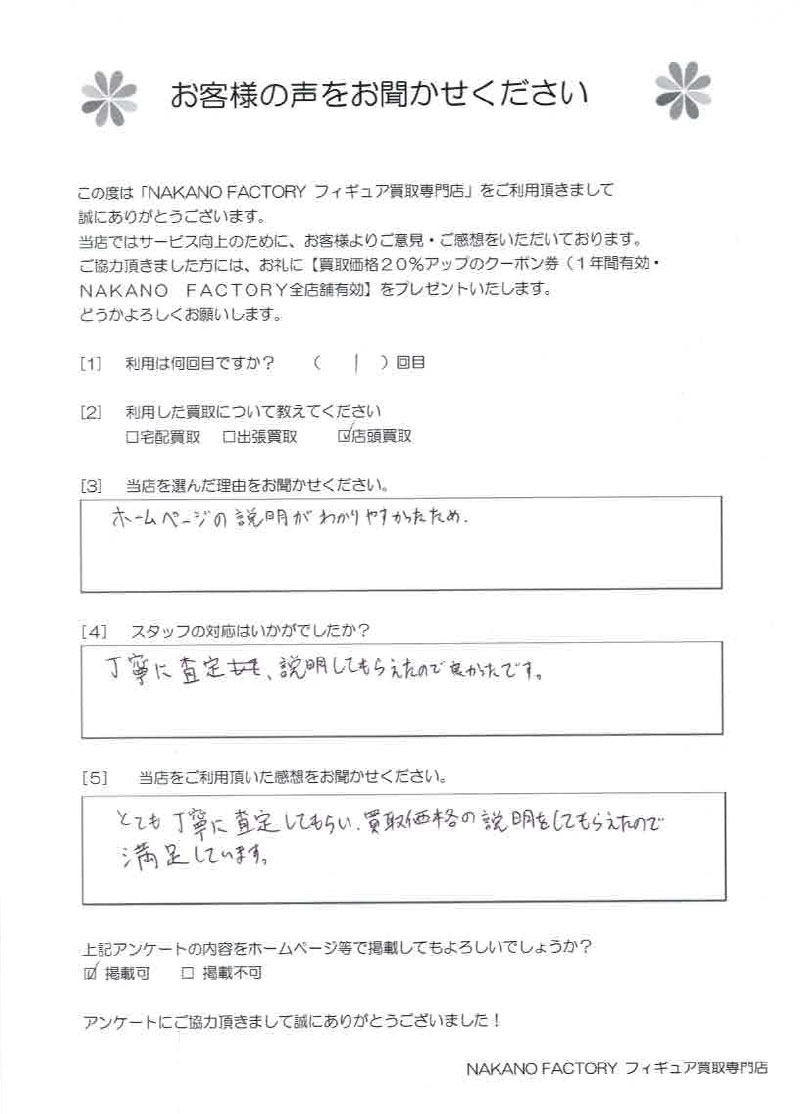 お客様の声をお聞かせください
この度は「NAKANO FACTORY フィギュア買取専門店」をご利用頂きまして
誠にありがとうございます。
当店ではサービス向上のために、お客様よりご意見・ご感想をいただいております。
ご協力頂きました方には、お礼に【買取価格20%アップのクーポン券（1年間有効・
NAKANO FACTORY全店舗有効】をプレゼントいたします。
どうかよろしくお願いします。
[1] 利用は何回目ですか？ （ 1 ）回目
[2] 利用した買取について教えてください
□宅配買取 □出張買取 ☑店頭買取
[3] 当店を選んだ理由をお聞かせください。
ホームページの説明がわかりやすかったため.
[4] スタッフの対応はいかがでしたか？
丁寧に査定、説明してもらえたので良かったです。
[5] 当店をご利用頂いた感想をお聞かせください。
とても丁寧に査定してもらい、買取価格の説明をしてもらえたので
満足しています。
上記アンケートの内容をホームページ等で掲載してもよろしいでしょうか？
☑ 掲載可 □ 掲載不可
アンケートにご協力頂きまして誠にありがとうございました！
NAKANO FACTORY フィギュア買取専門店